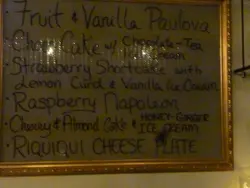 Fruit & Vanilla Pavlova
Choc Cake w/ Chocolate-Tea
Cream
Strawberry Shortcake with
Lemon Curd & Vanilla Ice Cream
Raspberry Napoleon
Cherry & Almond Cake & HONEY-GINGER
ICE CREAM
RIQUIQUI CHEESE PLATE